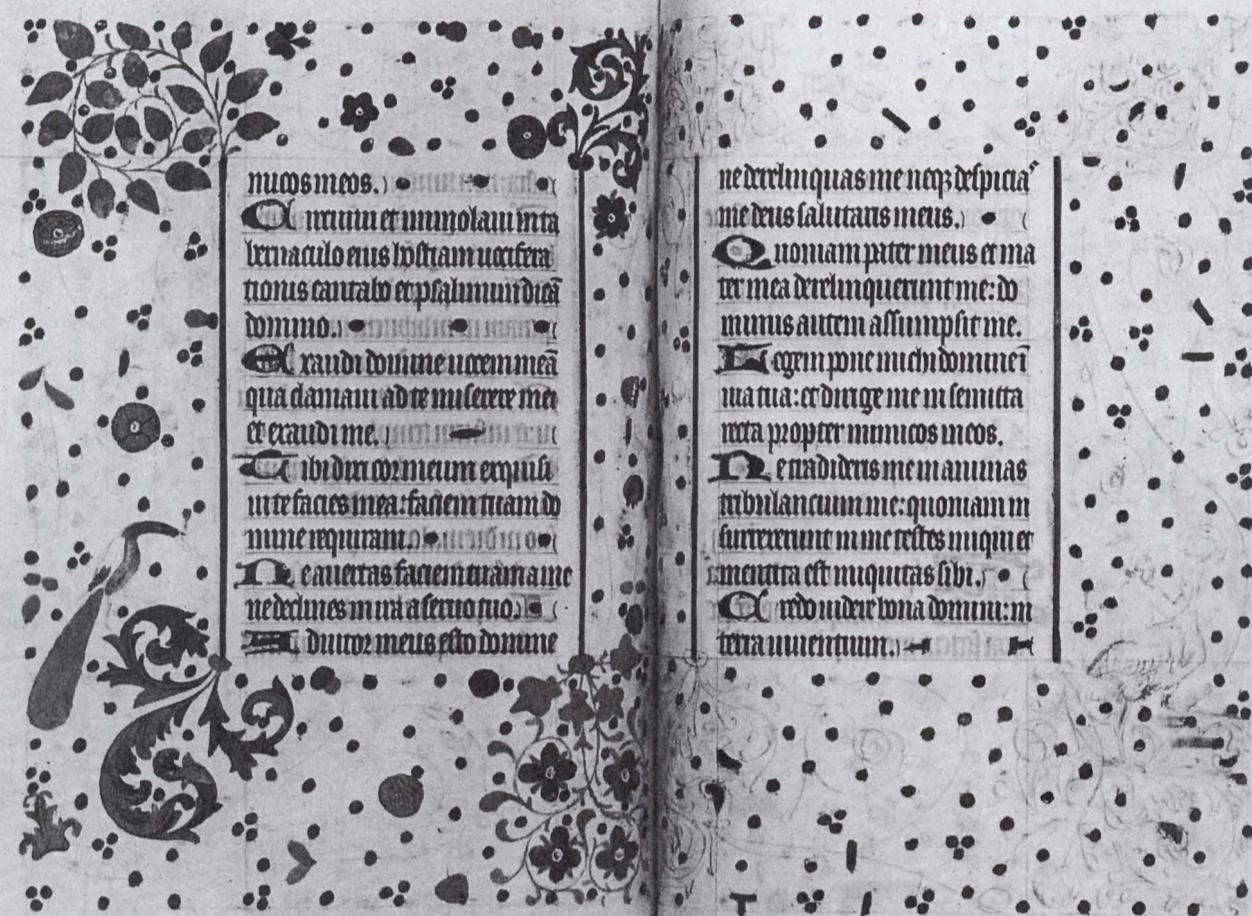 micos meos.
Circuivi et immolavi in ta
bernaculo eius hostiam vocifera
tionis cantabo et psalmum dicā
domino.
Exaudi domine vocem meā
qua clamavi ad te miserere mei
et exaudi me.
Tibi dixit cor meum exquisi
vit te facies mea: faciem tuam do
mine requiram.
Ne avertas faciem tuam a me
ne declines in ira a servo tuo.
Adiutor meus esto domine
ne derelinquas me neqꝫ despicias
me deus salutaris meus.
Quoniam pater meus et ma
ter mea derelinquerunt me: do
minus autem assumpsit me.
Legem pone michi domine ī
via tua: et dirige me in semitta
recta propter inimicos meos.
Ne tradideris me in animas
tribulancium me: quoniam in
surrexerunt in me testes iniqui et
mentita est iniquitas sibi.
Credo videre bona domini: in
terra viventium.